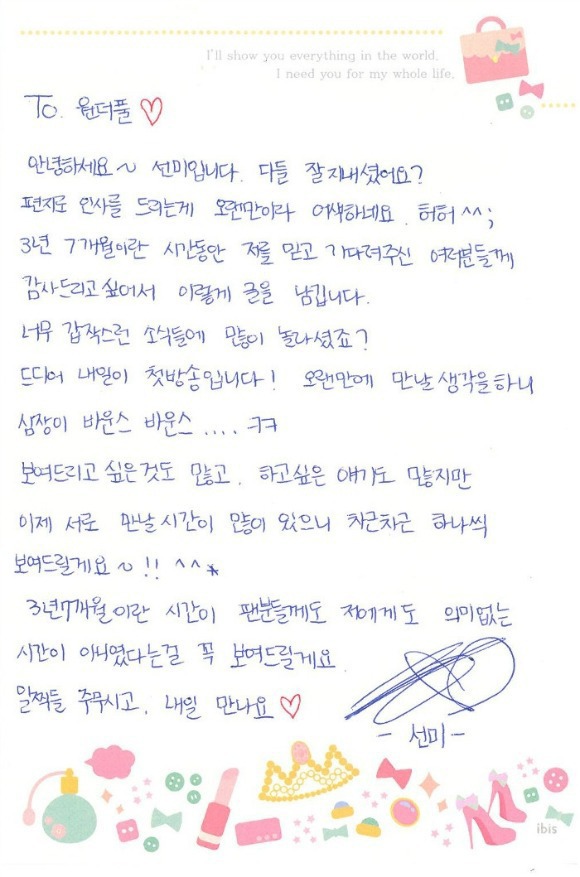 I'll show you everything in the world.
I need you for my whole life.
To. 원더풀 ♡
안녕하세요~ 선미입니다. 다들 잘지내셨어요?
편지로 인사를 드리는게 오랜만이라 어색하네요. 허허^^;
3년 7개월이란 시간동안 저를 믿고 기다려주신 여러분들께
감사드리고싶어서 이렇게 글을 남깁니다.
너무 갑작스런 소식들에 많이 놀라셨죠?
드디어 내일이 첫방송입니다! 오랜만에 만날생각을하니
심장이 바운스 바운스.... ㅋㅋ
보여드리고 싶은것도 많고, 하고싶은 얘기도 많지만
이제 서로 만날시간이 많이 있으니 차근차근 하나씩
보여드릴게요~!! ^^*
3년7개월이란 시간이 팬분들께도 저에게도 의미없는
시간이 아니였다는걸 꼭 보여드릴게요.
일찍들 주무시고, 내일 만나요♡
- 선미 -
ibis